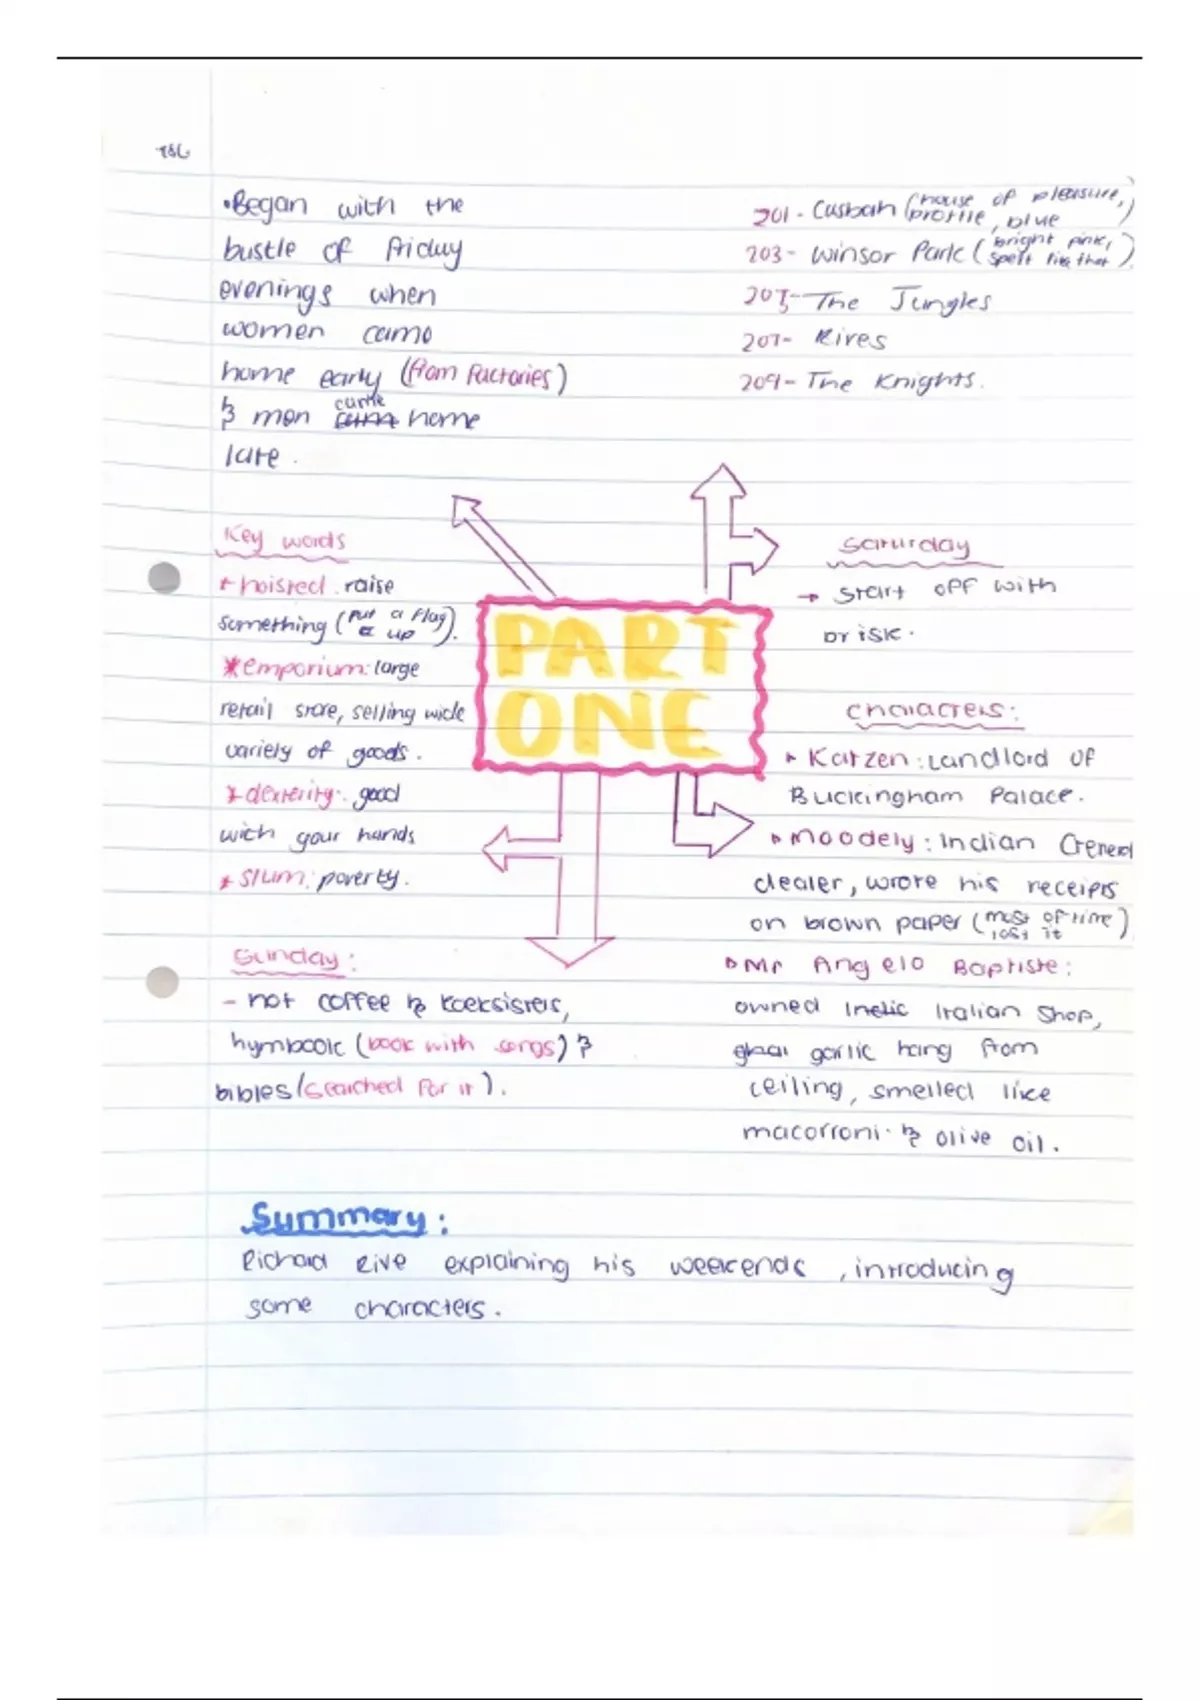 •Began with the
bustle of friday
evenings when
women came
home early (from factories)
& men came home
late.
201 - Casbah (house of pleasure, profile, blue)
203 - Winsor Park (bright pink, spelt like that)
205 - The Jungles
207 - Rives
209 - The Knights.
Key words
* hoisted. raise
something (put a flag up).
*emporium: large
retail store, selling wide
variety of goods.
* dexterity: good
with your hands
* slum: poverty.
PART
ONE
Saturday
→ start off with
brisk.
Characters:
Katzen: Landlord of
Buckingham Palace.
Moodely: Indian General
dealer, wrote his receipts
on brown paper (most of time lost it)
Mr Angelo Baptiste:
owned Italian shop,
garlic hang from
ceiling, smelled like
macorroni & olive oil.
Sunday:
- hot coffee & koeksisters,
hymbook (book with songs) &
bibles (searched for it).
Summary:
Richard Rive explaining his weekends, introducing
some characters.